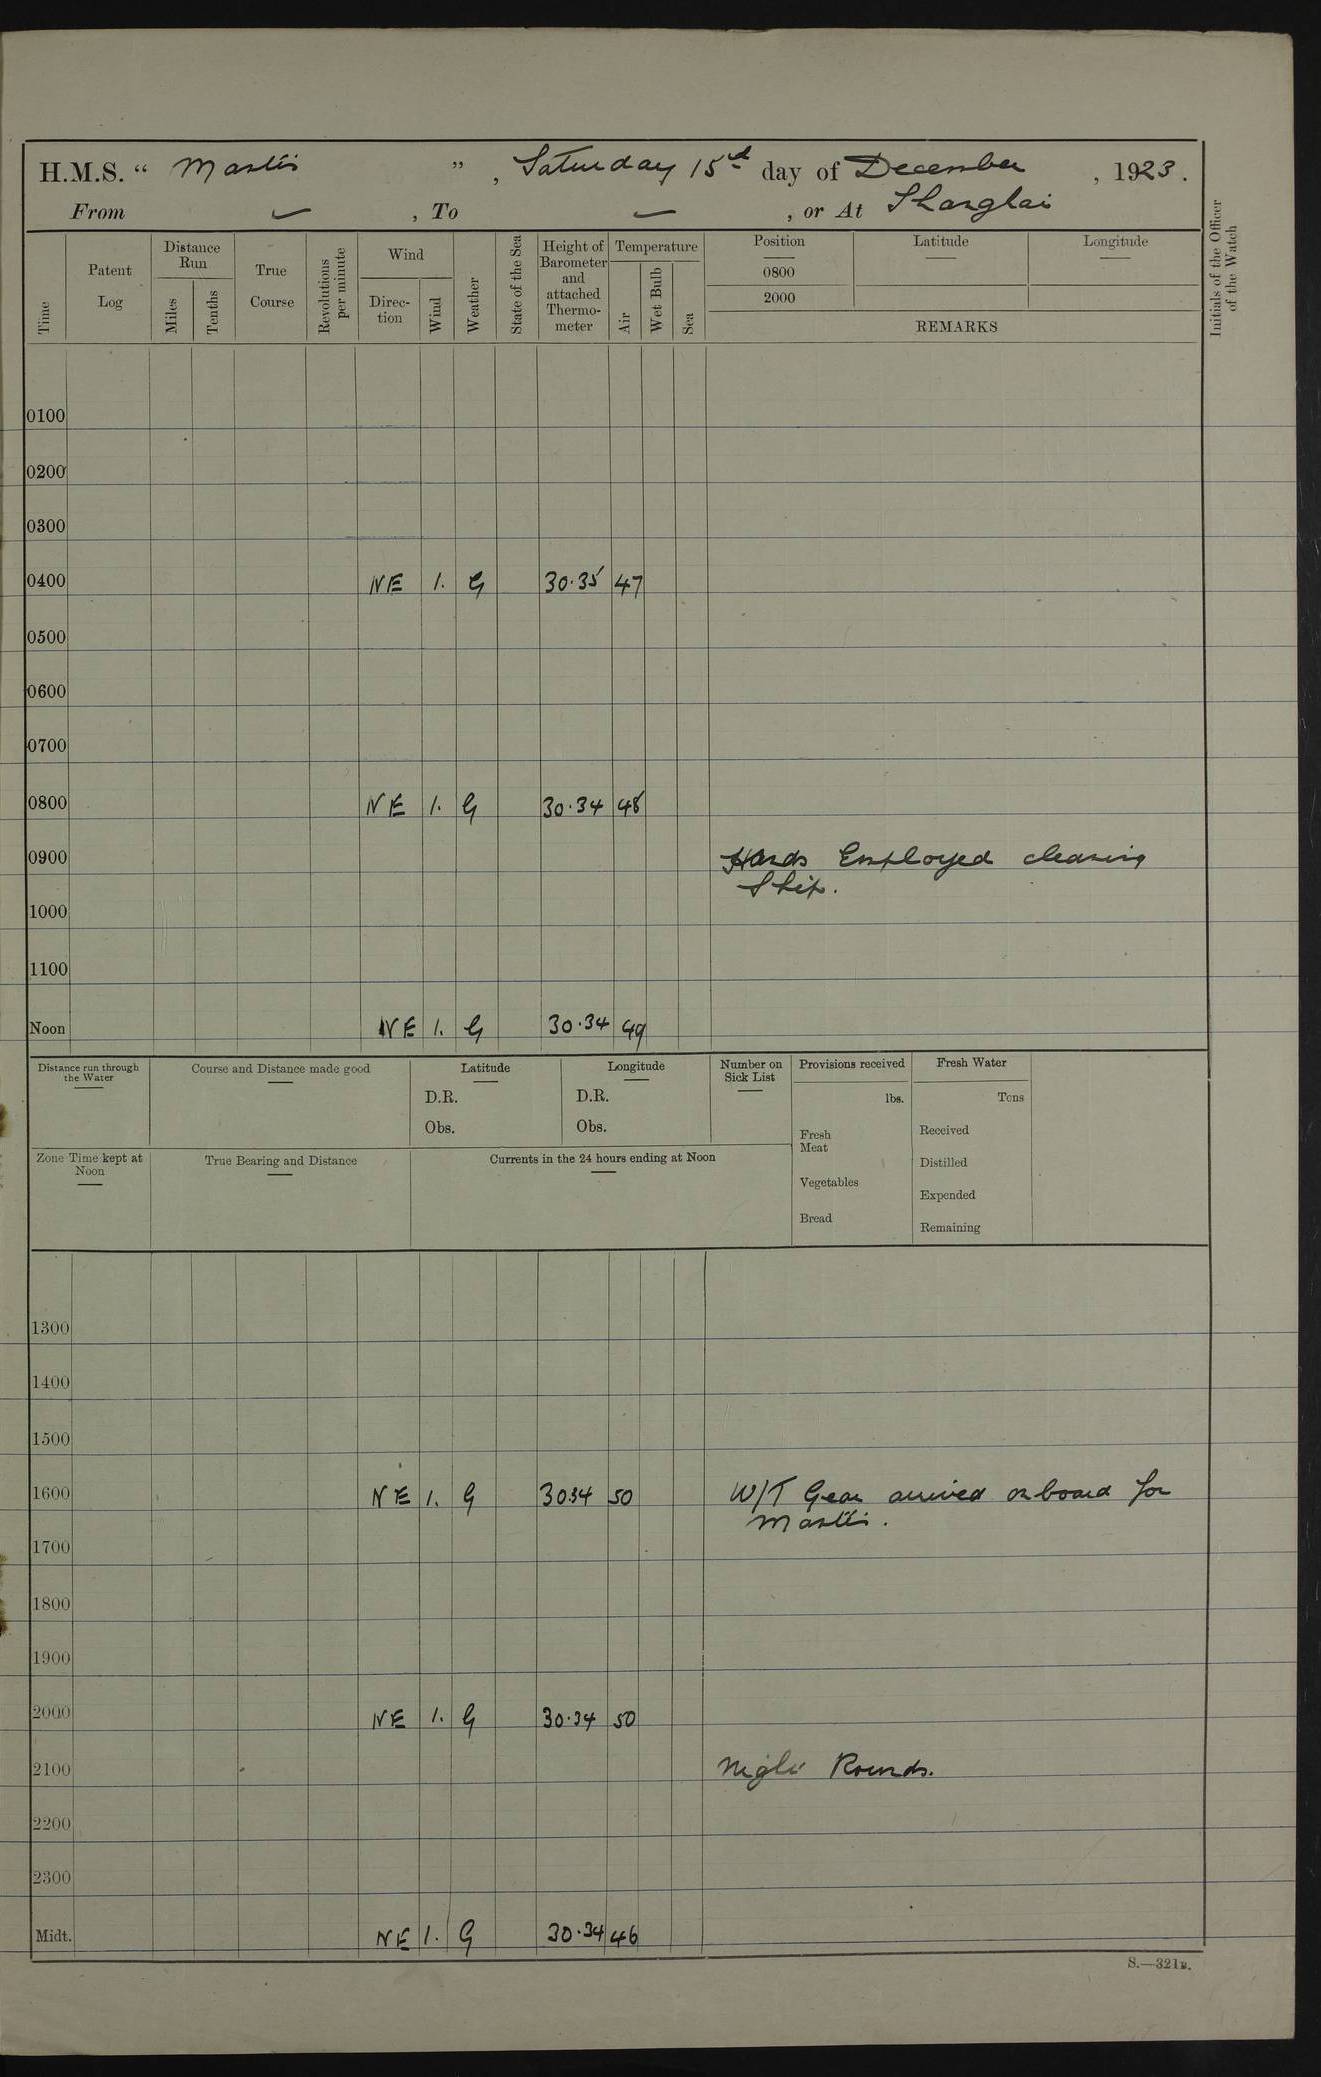 H.M.S. “ Mantis ” , Saturday 15th day of December , 1923.
From ✓ , To ✓ , or At Shanghai
Time
Patent Log
Distance Run
Miles
Tenths
True Course
Revolutions per minute
Wind
Direc-tion
Wind
Weather
State of the Sea
Height of Barometer and attached Thermo-meter
Temperature
Air
Wet Bulb
Sea
Position Latitude Longitude
0800
2000
REMARKS
Initials of the Officer of the Watch
0100
0200
0300
0400 NE 1. G 30·35 47
0500
0600
0700
0800 NE 1. G 30·34 48
0900 Hands Employed cleaning
Ship.
1000
1100
Noon NE 1. G 30·34 49
Distance run through the Water
Course and Distance made good
Latitude
D.R.
Obs.
Longitude
D.R.
Obs.
Number on Sick List
Provisions received
lbs.
Fresh Meat
Vegetables
Bread
Fresh Water
Tons
Received
Distilled
Expended
Remaining
Zone Time kept at Noon
True Bearing and Distance
Currents in the 24 hours ending at Noon
1300
1400
1500
1600 NE 1. G 3034 50 W/T Gear arrived on board for
Mantis.
1700
1800
1900
2000 NE 1. G 30·34 50
2100 Night Rounds.
2200
2300
Midt. NE 1. G 30·34 46
S.—321B.